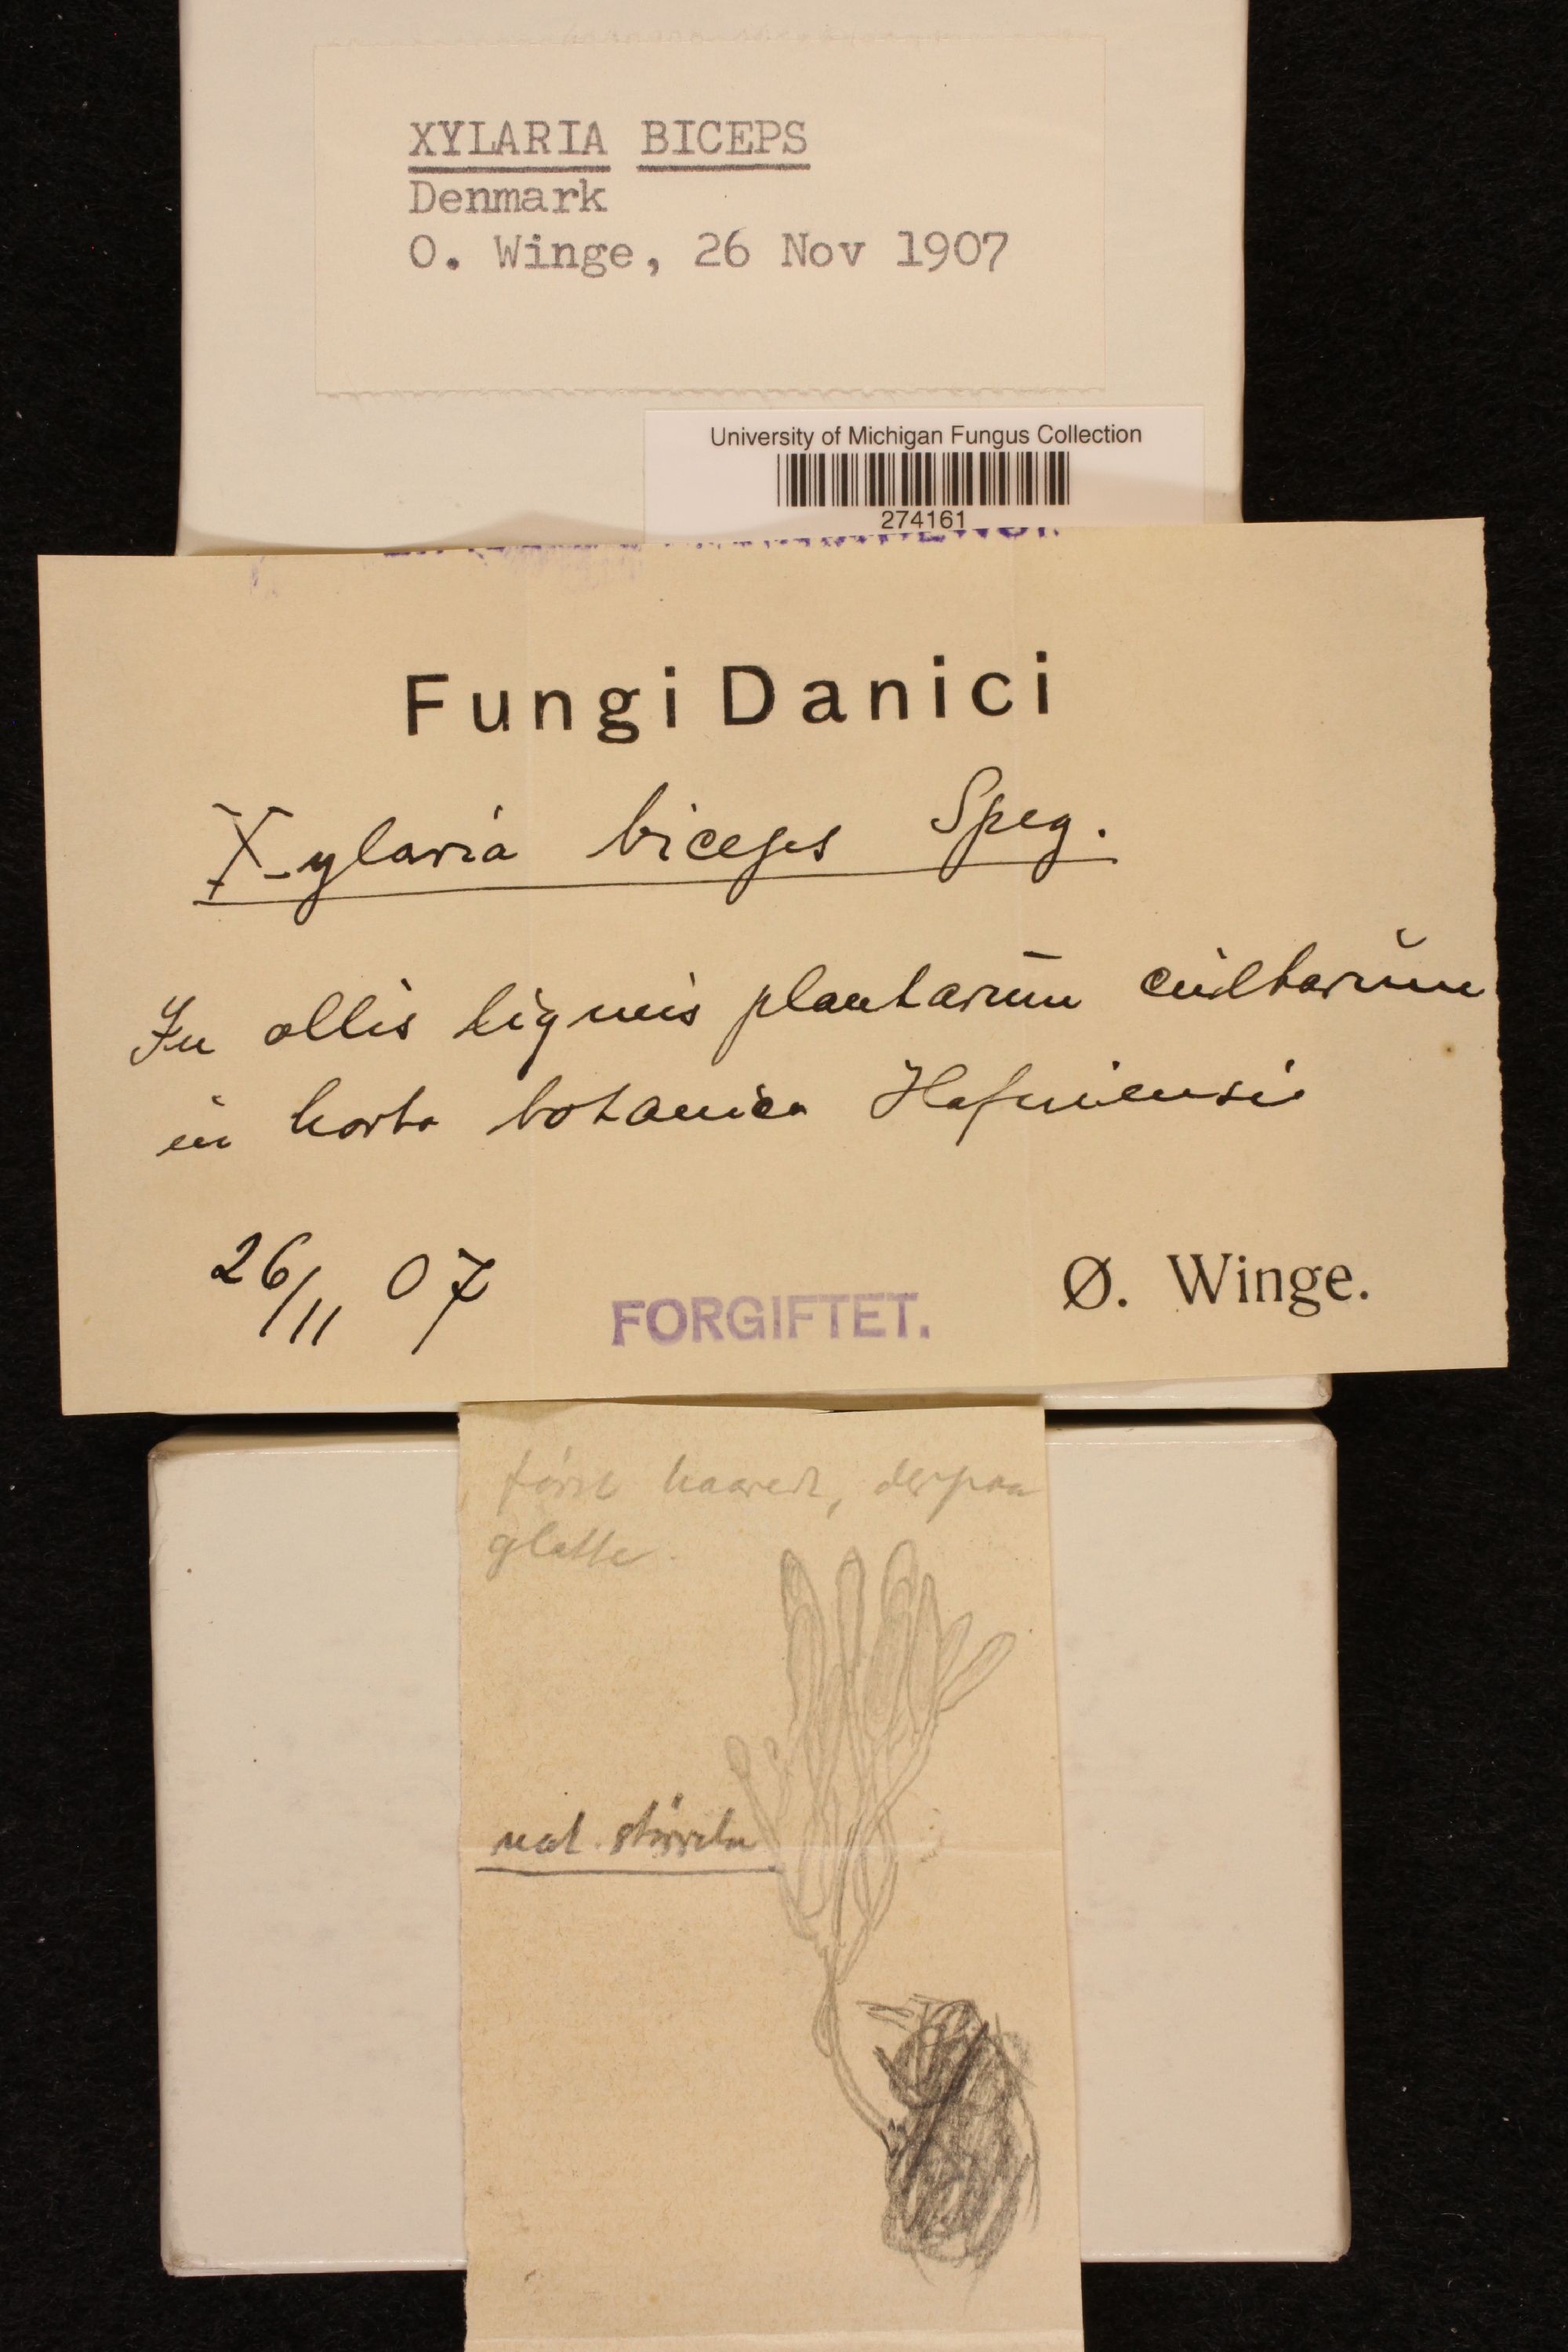 XYLARIA BICEPS
Denmark
O. Winge, 26 Nov 1907
University of Michigan Fungus Collection
274161
Fungi Danici
Xylaria biceps Speg.
In ollis ligneis plantarūm cultarŭm
in horto botanico Hafniensis
26/11 07
FORGIFTET.
Ø. Winge.
först haaret, derpaa
glatte.
nat. störrelse